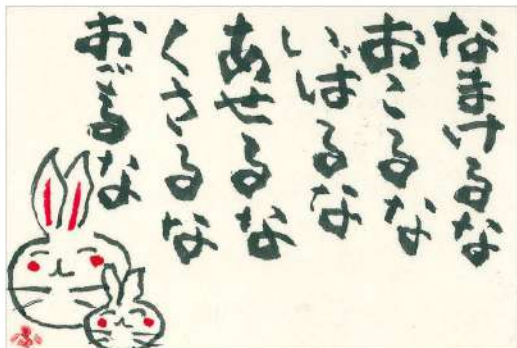 なまけるな
おこるな
いばるな
あせるな
くさるな
おごるな